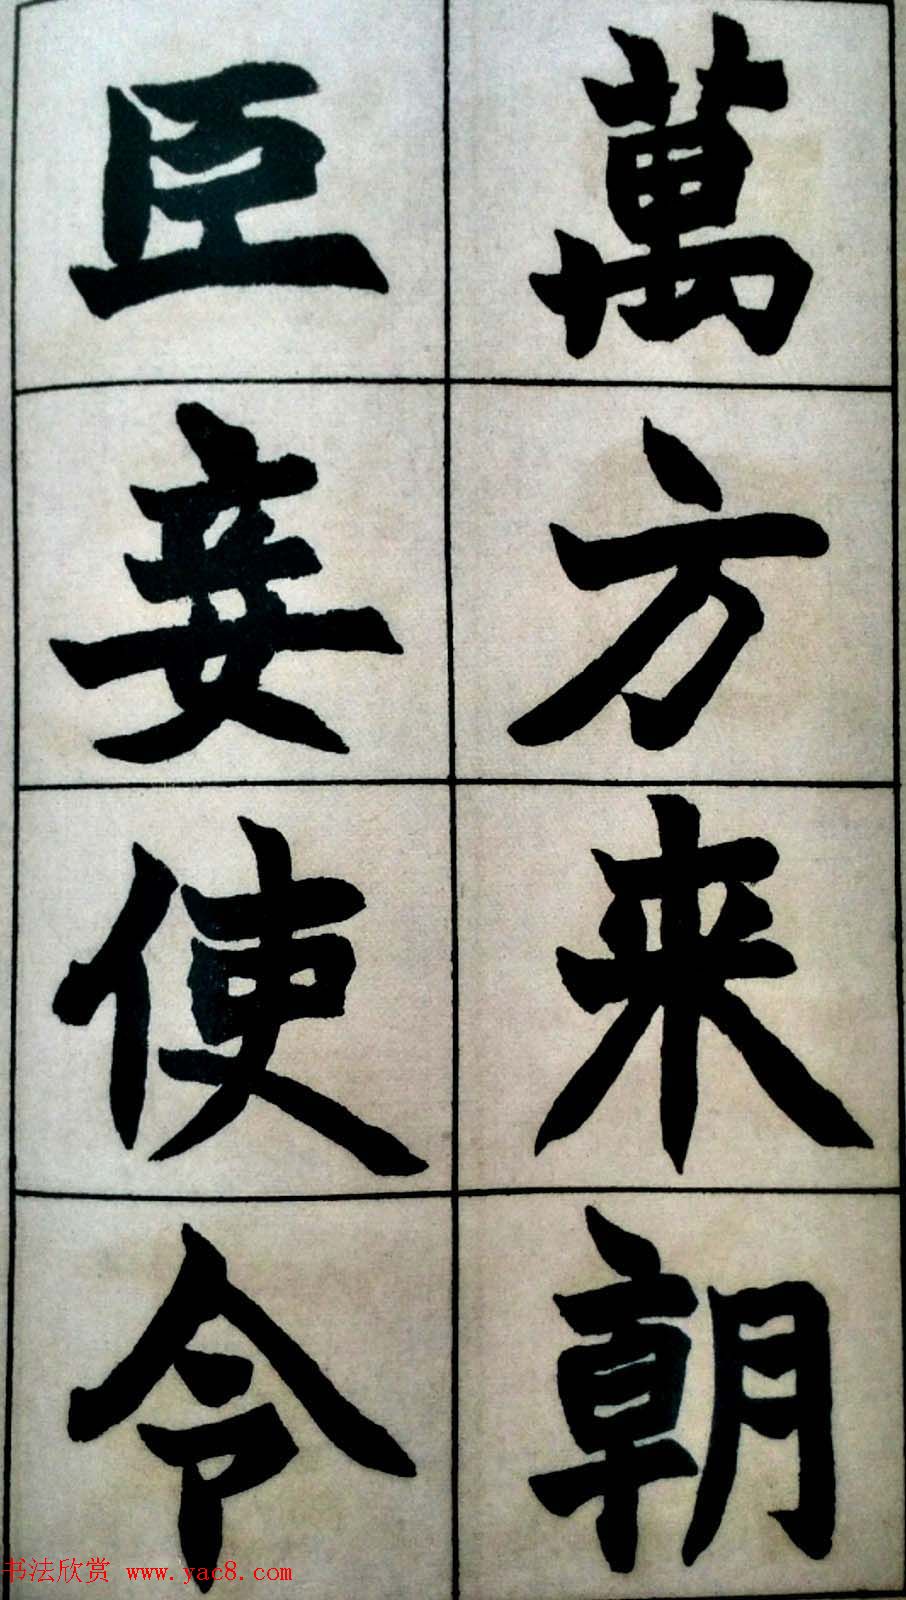 萬方来朝
臣妾使令
书法欣赏 www.yac8.com